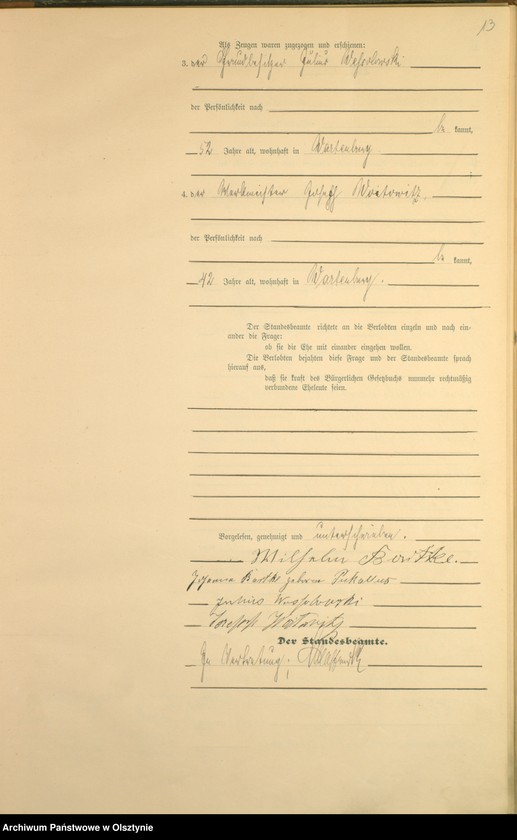 13
Als Zeugen waren zugezogen und erschienen:
3. der Grundbesitzer Julius
der Persönlichkeit nach
be kannt,
52 Jahre alt, wohnhaft in Wartenburg.
4. der Werkmeister Joseph
der Persönlichkeit nach
be kannt,
42 Jahre alt, wohnhaft in Wartenburg.
Der Standesbeamte richtete an die Verlobten einzeln und nach ein-
ander die Frage:
ob sie die Ehe mit einander eingehen wollen.
Die Verlobten bejahten diese Frage und der Standesbeamte sprach
hierauf aus,
daß sie kraft des Bürgerlichen Gesetzbuchs nunmehr rechtmäßig
verbundene Eheleute seien.
Vorgelesen, genehmigt und unterschrieben.
Wilhelm
geborene
Julius
Joseph
Der Standesbeamte.
In Vertretung:
Archiwum Państwowe w Olsztynie